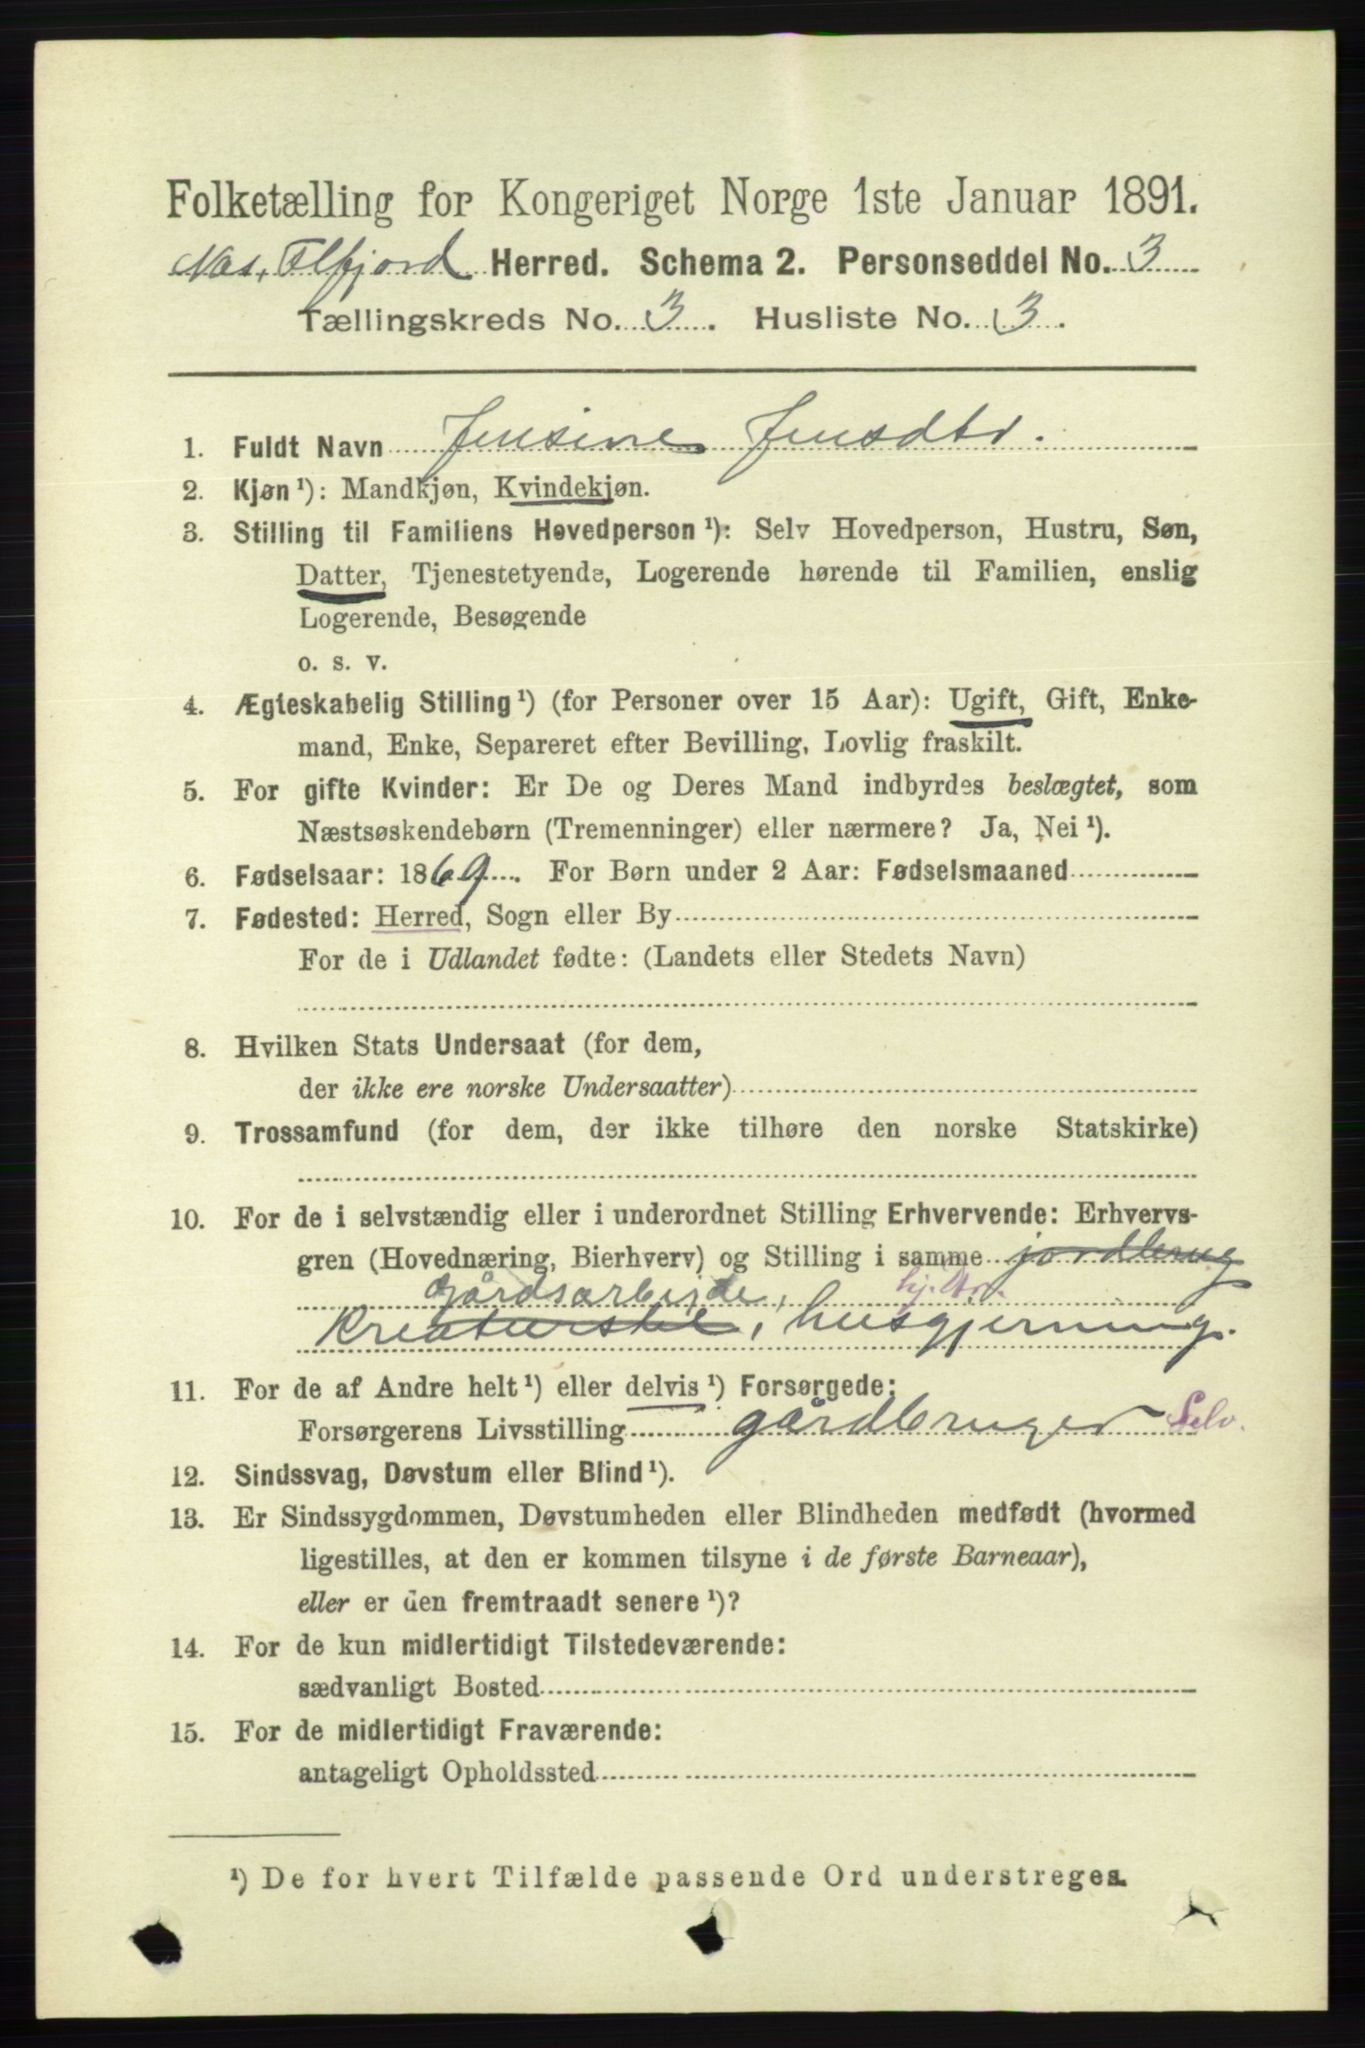 Folketælling for Kongeriget Norge 1ste Januar 1891.
Næs, Elfjord Herred. Schema 2. Personseddel No. 3
Tællingskreds No. 3. Husliste No. 3.
1. Fuldt Navn Jensine Jensdtr.
2. Kjøn ¹): Mandkjøn, Kvindekjøn.
3. Stilling til Familiens Hovedperson ¹): Selv Hovedperson, Hustru, Søn,
Datter, Tjenestetyende, Logerende hørende til Familien, enslig
Logerende, Besøgende
o. s. v.
4. Ægteskabelig Stilling ¹) (for Personer over 15 Aar): Ugift, Gift, Enke-
mand, Enke, Separeret efter Bevilling, Lovlig fraskilt.
5. For gifte Kvinder: Er De og Deres Mand indbyrdes beslægtet, som
Næstsøskendebørn (Tremenninger) eller nærmere? Ja, Nei ¹).
6. Fødselsaar: 1869. For Børn under 2 Aar: Fødselsmaaned
7. Fødested: Herred, Sogn eller By
For de i Udlandet fødte: (Landets eller Stedets Navn)
8. Hvilken Stats Undersaat (for dem,
der ikke ere norske Undersaatter)
9. Trossamfund (for dem, der ikke tilhøre den norske Statskirke)
10. For de i selvstændig eller i underordnet Stilling Erhvervende: Erhvervs-
gren (Hovednæring, Bierhverv) og Stilling i samme jordbrug
Gårdsarbejde, hj. Dtr.
Kreaturstel, husgjerning.
11. For de af Andre helt ¹) eller delvis ¹) Forsørgede:
Forsørgerens Livsstilling gårdbruger Selv.
12. Sindssvag, Døvstum eller Blind ¹).
13. Er Sindssygdommen, Døvstumheden eller Blindheden medfødt (hvormed
ligestilles, at den er kommen tilsyne i de første Barneaar),
eller er den fremtraadt senere ¹)?
14. For de kun midlertidigt Tilstedeværende:
sædvanligt Bosted
15. For de midlertidigt Fraværende:
antageligt Opholdssted
¹) De for hvert Tilfælde passende Ord understreges.